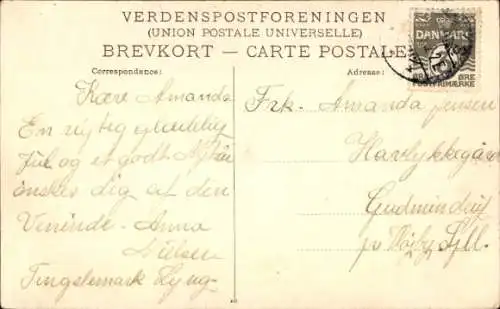 VERDENSPOSTFORENINGEN
(UNION POSTALE UNIVERSELLE)
BREVKORT — CARTE POSTALE
Correspondance:
Kære Amanda
En rigtig glædelig
Jul og et godt Nytår
ønskes dig af den
Veninde. Anna
Tingstemark Lyng
Adresse:
Frk. Amanda Jensen
Havlykkegård
Gudmindrup
pr Højby Sjll.
DANMARK
ØRE
POSTFRIMÆRKE